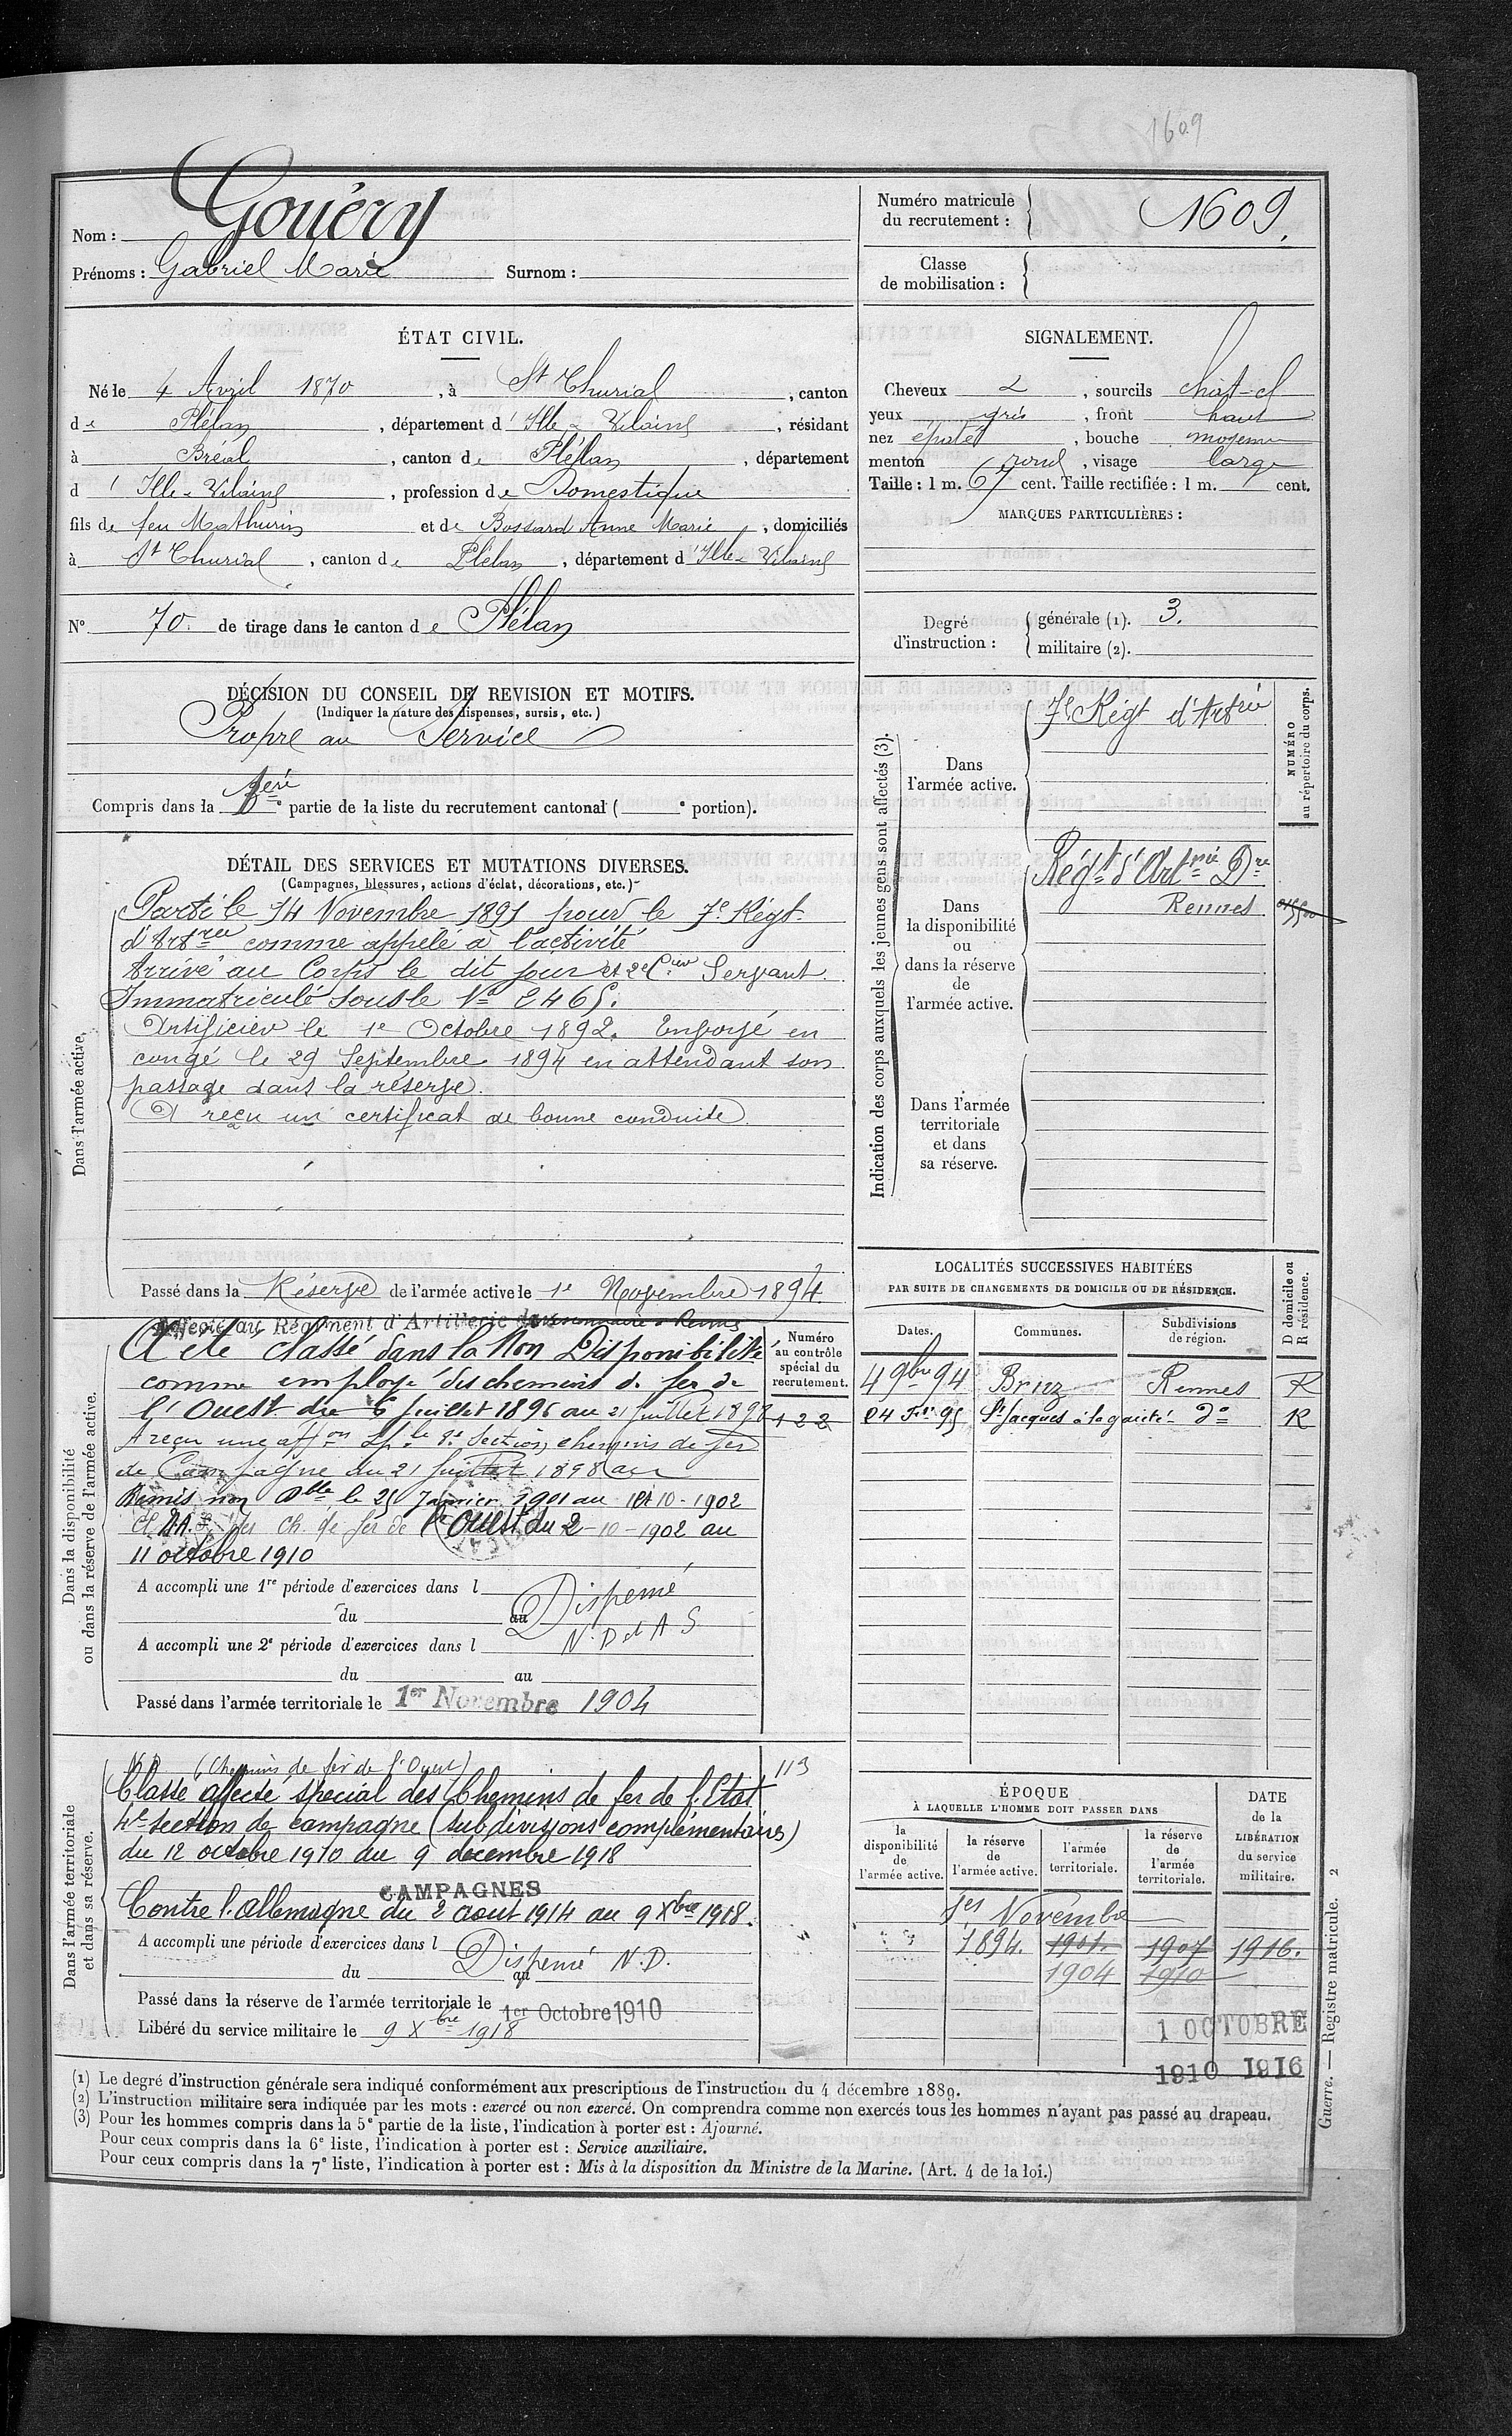 1609
Nom : Gouéry
Prénoms : Gabriel Marie Surnom :
Numéro matricule du recrutement : 1609.
Classe de mobilisation :
ÉTAT CIVIL.
Né le 4 Avril 1870, à St Thurial, canton
de Plélan, département d'Ille & Vilaine, résidant
à Bréal, canton de Plélan, département
d'Ille & Vilaine, profession de Domestique
fils de feu Mathurin et de Bossard Anne Marie, domiciliés
à St Thurial, canton de Plélan, département d'Ille & Vilaine
N° 70. de tirage dans le canton de Plélan
SIGNALEMENT.
Cheveux 2, sourcils chât-cl
yeux gris, front haut
nez épaté, bouche moyenne
menton rond, visage large
Taille : 1 m. 67 cent. Taille rectifiée : 1 m. cent.
MARQUES PARTICULIÈRES :
Degré d'instruction : générale (1). 3.
militaire (2).
DÉCISION DU CONSEIL DE REVISION ET MOTIFS.
(Indiquer la nature des dispenses, sursis, etc.)
Propre au Service
Compris dans la 1ère partie de la liste du recrutement cantonal ( e portion).
DÉTAIL DES SERVICES ET MUTATIONS DIVERSES.
(Campagnes, blessures, actions d'éclat, décorations, etc.)
Dans l'armée active.
Parti le 14 Novembre 1891 pour le 7e Régt
d'Artrie comme appelé à l'activité
Arrivé au Corps le dit jour et 2e Cier Servant.
Immatriculé sous le No 2465.
Artificier le 1e Octobre 1892. Envoyé en
congé le 29 Septembre 1894 en attendant son
passage dans la réserve.
A reçu un certificat de bonne conduite
Passé dans la Réserve de l'armée active le 1e Novembre 1894.
Indication des corps auxquels les jeunes gens sont affectés (3).
NUMÉRO au répertoire du corps.
Dans l'armée active.
7e Régt d'Artrie
Dans la disponibilité ou dans la réserve de l'armée active.
Régt d'Artrie Dre
Rennes
Dans l'armée territoriale et dans sa réserve.
Dans la disponibilité ou dans la réserve de l'armée active.
Numéro au contrôle spécial du recrutement.
Régiment d'Artillerie
A été classé dans la Non Disponibilité
comme employé des chemins de fer de
l'Ouest du 6 Juillet 1896 au 21 Juillet 1898
122
A reçu une affon Sple 4e Section chemins de fer
de Campagne du 21 Juillet 1898 au
Remis non Dble le 25 Janvier 1901 au 1er 10-1902
ch. de fer de l'Ouest du 2-10-1902 au
11 octobre 1910
A accompli une 1re période d'exercices dans l
Dispensé
du au
A accompli une 2e période d'exercices dans l N.D et A S
du au
Passé dans l'armée territoriale le 1er Novembre 1904
LOCALITÉS SUCCESSIVES HABITÉES
PAR SUITE DE CHANGEMENTS DE DOMICILE OU DE RÉSIDENCE.
D domicile ou R résidence.
Dates. Communes. Subdivisions de région.
4 9bre 94 Bruz Rennes R
24 Fer 95 St Jacques à la gaieté do R
Dans l'armée territoriale et dans sa réserve.
N D (Chemins de fer de l'Ouest) 113
Classé affecté spécial des Chemins de fer de l'Etat
4e section de campagne (subdivisions complémentaires)
du 12 octobre 1910 au 9 decembre 1918
CAMPAGNES
Contre l'allemagne du 2 aout 1914 au 9 Xbre 1918.
A accompli une période d'exercices dans l
Dispensé N.D.
du au
Passé dans la réserve de l'armée territoriale le 1er Octobre 1910
Libéré du service militaire le 9 Xbre 1918
ÉPOQUE
À LAQUELLE L'HOMME DOIT PASSER DANS
la disponibilité de l'armée active.
la réserve de l'armée active.
l'armée territoriale.
la réserve de l'armée territoriale.
DATE de la LIBÉRATION du service militaire.
1er Novembre
1894. 1901. 1907 1916.
1904 1910
1 OCTOBRE
1910 1916
Guerre. — Registre matricule. 2
(1) Le degré d'instruction générale sera indiqué conformément aux prescriptions de l'instruction du 4 décembre 1889.
(2) L'instruction militaire sera indiquée par les mots : exercé ou non exercé. On comprendra comme non exercés tous les hommes n'ayant pas passé au drapeau.
(3) Pour les hommes compris dans la 5e partie de la liste, l'indication à porter est : Ajourné.
Pour ceux compris dans la 6e liste, l'indication à porter est : Service auxiliaire.
Pour ceux compris dans la 7e liste, l'indication à porter est : Mis à la disposition du Ministre de la Marine. (Art. 4 de la loi.)